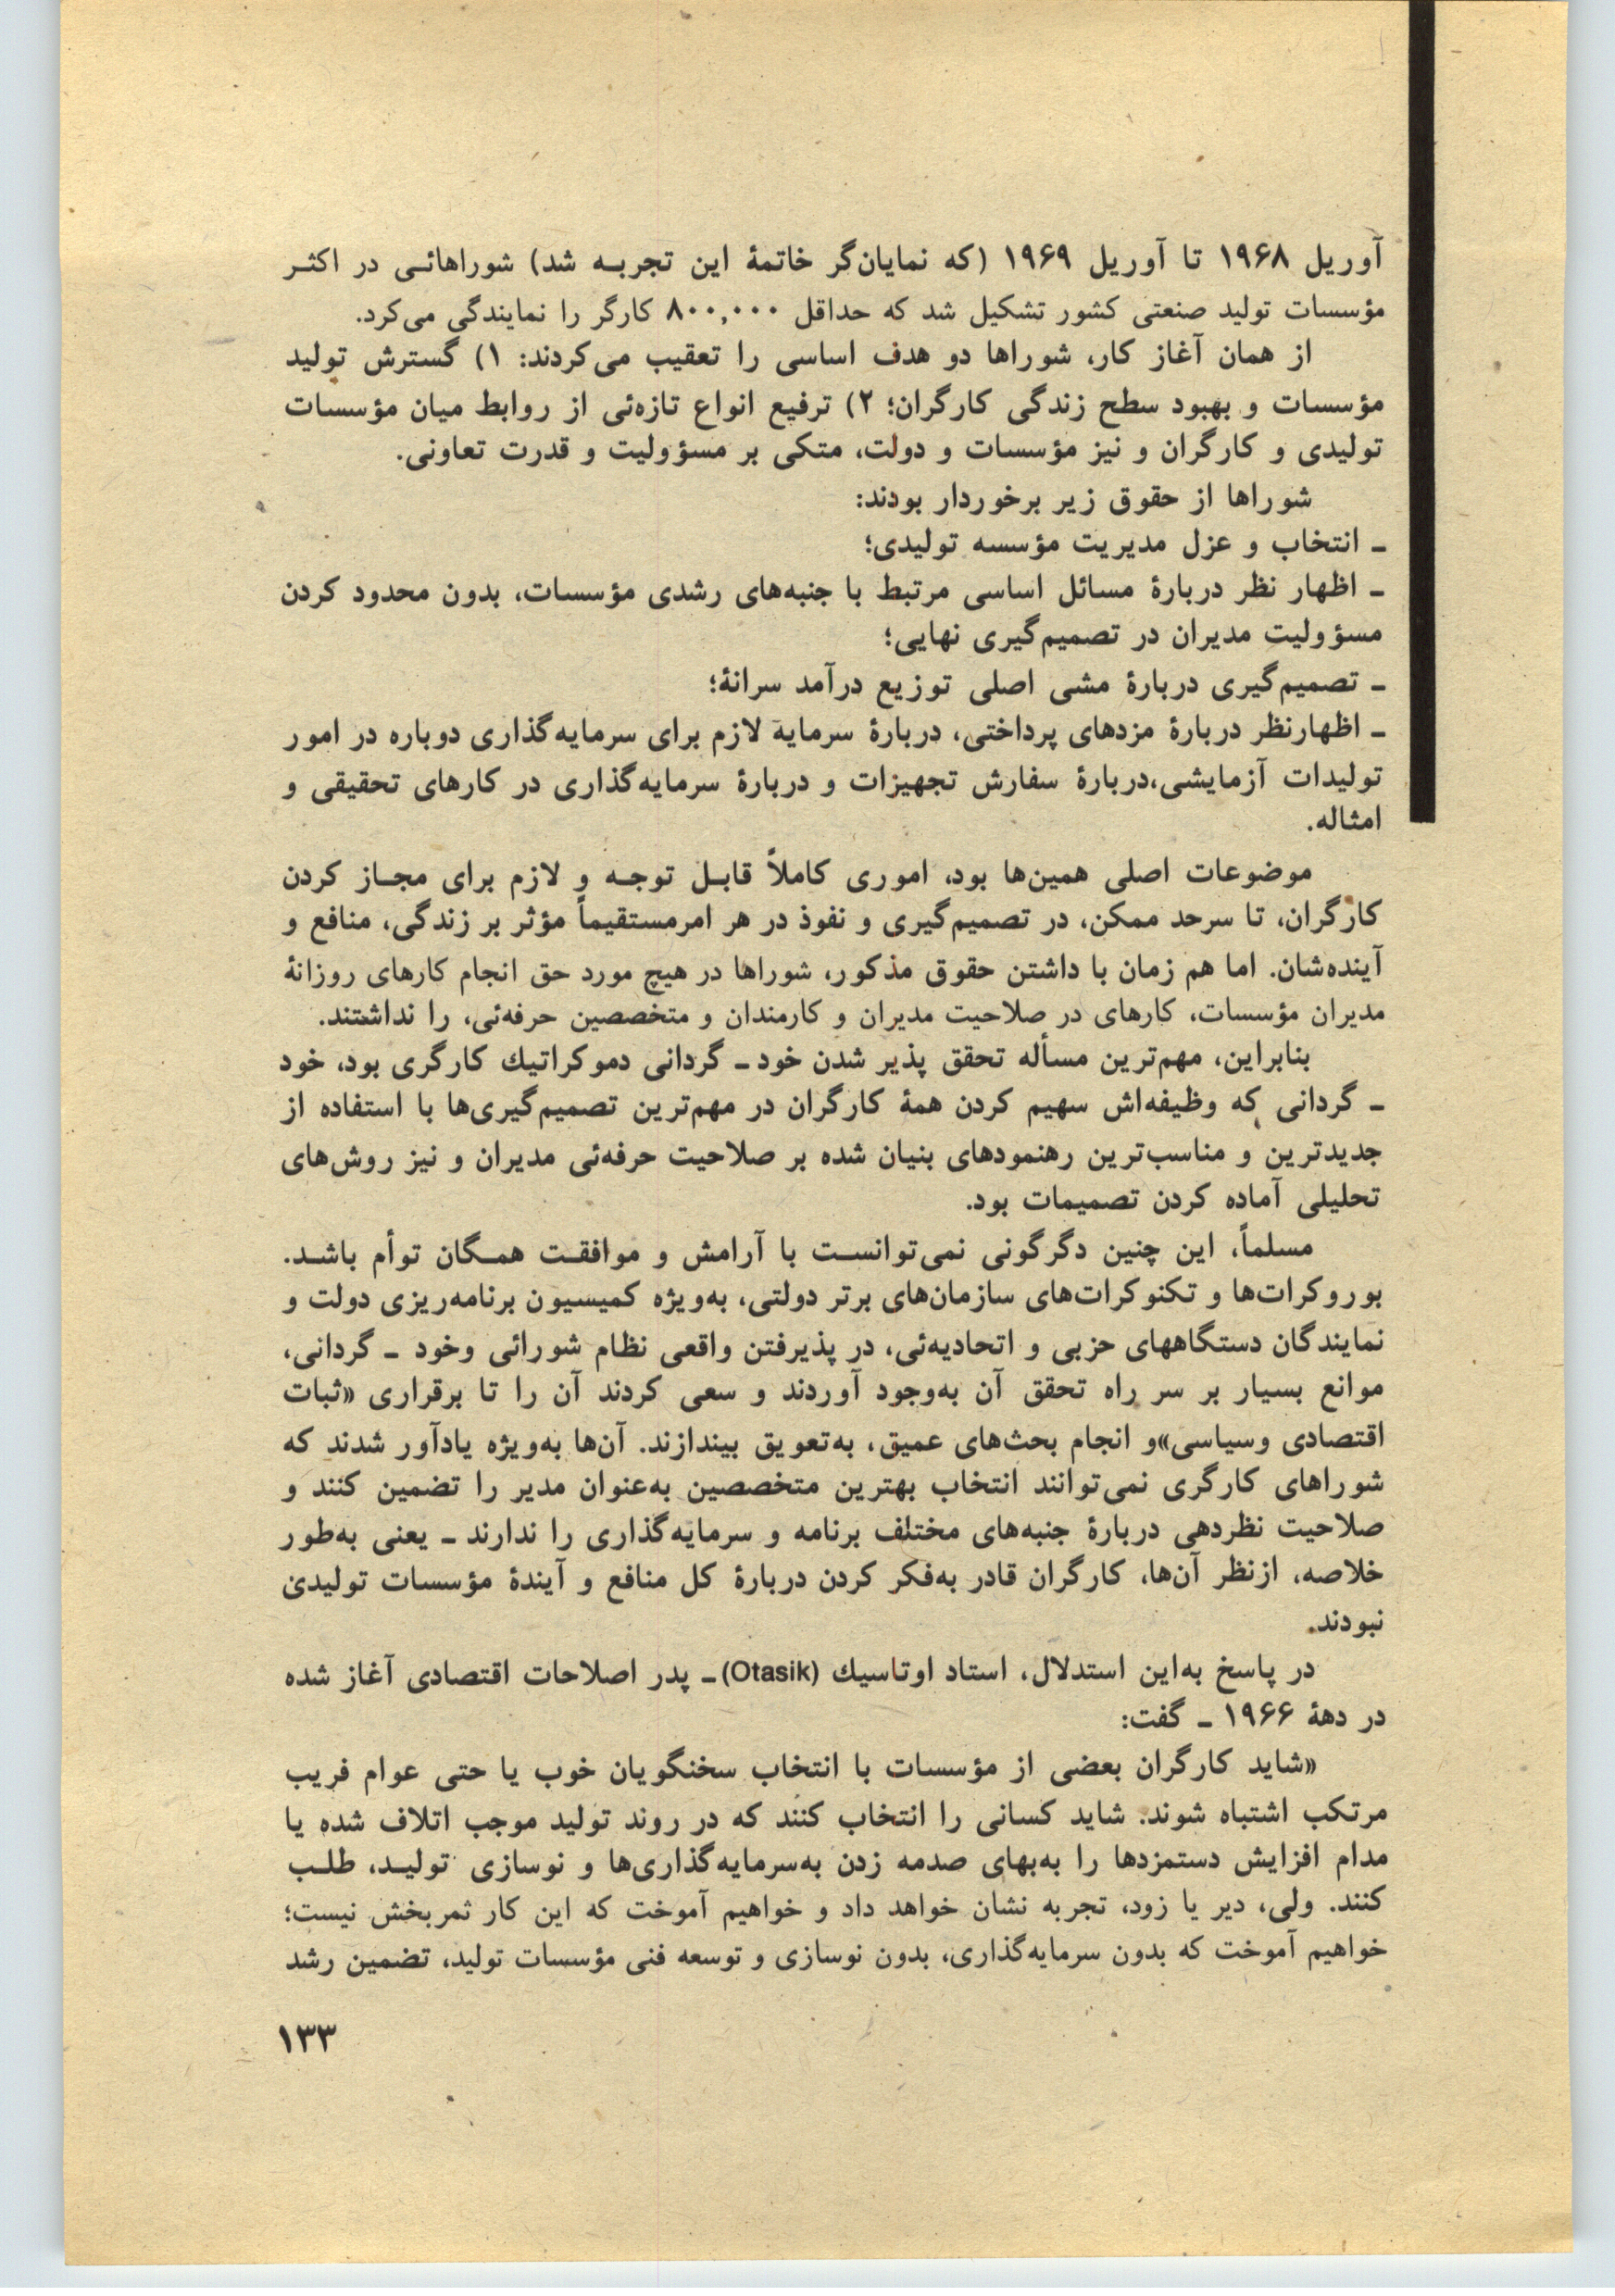 آوریل ۱۹۶۸ تا آوریل ۱۹۶۹ (که نمایان‌گر خاتمهٔ این تجربه شد) شوراهائی در اکثر
مؤسسات تولید صنعتی کشور تشکیل شد که حداقل ۸۰۰,۰۰۰ کارگر را نمایندگی می‌کرد.
از همان آغاز کار، شوراها دو هدف اساسی را تعقیب می‌کردند: ۱) گسترش تولید
مؤسسات و بهبود سطح زندگی کارگران؛ ۲) ترفیع انواع تازه‌ئی از روابط میان مؤسسات
تولیدی و کارگران و نیز مؤسسات و دولت، متکی بر مسؤولیت و قدرت تعاونی.
شوراها از حقوق زیر برخوردار بودند:
ـ انتخاب و عزل مدیریت مؤسسه تولیدی؛
ـ اظهار نظر دربارهٔ مسائل اساسی مرتبط با جنبه‌های رشدی مؤسسات، بدون محدود کردن
مسؤولیت مدیران در تصمیم‌گیری نهایی؛
ـ تصمیم‌گیری دربارهٔ مشی اصلی توزیع درآمد سرانهٔ؛
ـ اظهارنظر دربارهٔ مزدهای پرداختی، دربارهٔ سرمایهٔ لازم برای سرمایه‌گذاری دوباره در امور
تولیدات آزمایشی،دربارهٔ سفارش تجهیزات و دربارهٔ سرمایه‌گذاری در کارهای تحقیقی و
امثاله.
موضوعات اصلی همین‌ها بود، اموری کاملاً قابل توجه و لازم برای مجاز کردن
کارگران، تا سرحد ممکن، در تصمیم‌گیری و نفوذ در هر امرمستقیماً مؤثر بر زندگی، منافع و
آینده‌شان. اما هم زمان با داشتن حقوق مذکور، شوراها در هیچ مورد حق انجام کارهای روزانهٔ
مدیران مؤسسات، کارهای در صلاحیت مدیران و کارمندان و متخصصین حرفه‌ئی، را نداشتند.
بنابراین، مهم‌ترین مسأله تحقق پذیر شدن خود ـ گردانی دموکراتیك کارگری بود، خود
ـ گردانی که وظیفه‌اش سهیم کردن همهٔ کارگران در مهم‌ترین تصمیم‌گیری‌ها با استفاده از
جدیدترین و مناسب‌ترین رهنمودهای بنیان شده بر صلاحیت حرفه‌ئی مدیران و نیز روش‌های
تحلیلی آماده کردن تصمیمات بود.
مسلماً، این چنین دگرگونی نمی‌توانست با آرامش و موافقت همگان توأم باشد.
بوروکرات‌ها و تکنوکرات‌های سازمان‌های برتر دولتی، به‌ویژه کمیسیون برنامه‌ریزی دولت و
نمایندگان دستگاههای حزبی و اتحادیه‌ئی، در پذیرفتن واقعی نظام شورائی وخود ـ گردانی،
موانع بسیار بر سر راه تحقق آن به‌وجود آوردند و سعی کردند آن را تا برقراری «ثبات
اقتصادی وسیاسی»و انجام بحث‌های عمیق، به‌تعویق بیندازند. آن‌ها به‌ویژه یادآور شدند که
شوراهای کارگری نمی‌توانند انتخاب بهترین متخصصین به‌عنوان مدیر را تضمین کنند و
صلاحیت نظردهی دربارهٔ جنبه‌های مختلف برنامه و سرمایه‌گذاری را ندارند ـ یعنی به‌طور
خلاصه، ازنظر آن‌ها، کارگران قادر به‌فکر کردن دربارهٔ کل منافع و آیندهٔ مؤسسات تولیدی
نبودند.
در پاسخ به‌این استدلال، استاد اوتاسیك (Otasik) ـ پدر اصلاحات اقتصادی آغاز شده
در دههٔ ۱۹۶۶ ـ گفت:
«شاید کارگران بعضی از مؤسسات با انتخاب سخنگویان خوب یا حتی عوام فریب
مرتکب اشتباه شوند. شاید کسانی را انتخاب کنند که در روند تولید موجب اتلاف شده یا
مدام افزایش دستمزدها را به‌بهای صدمه زدن به‌سرمایه‌گذاری‌ها و نوسازی تولید، طلب
کنند. ولی، دیر یا زود، تجربه نشان خواهد داد و خواهیم آموخت که این کار ثمربخش نیست؛
خواهیم آموخت که بدون سرمایه‌گذاری، بدون نوسازی و توسعه فنی مؤسسات تولید، تضمین رشد
۱۳۳